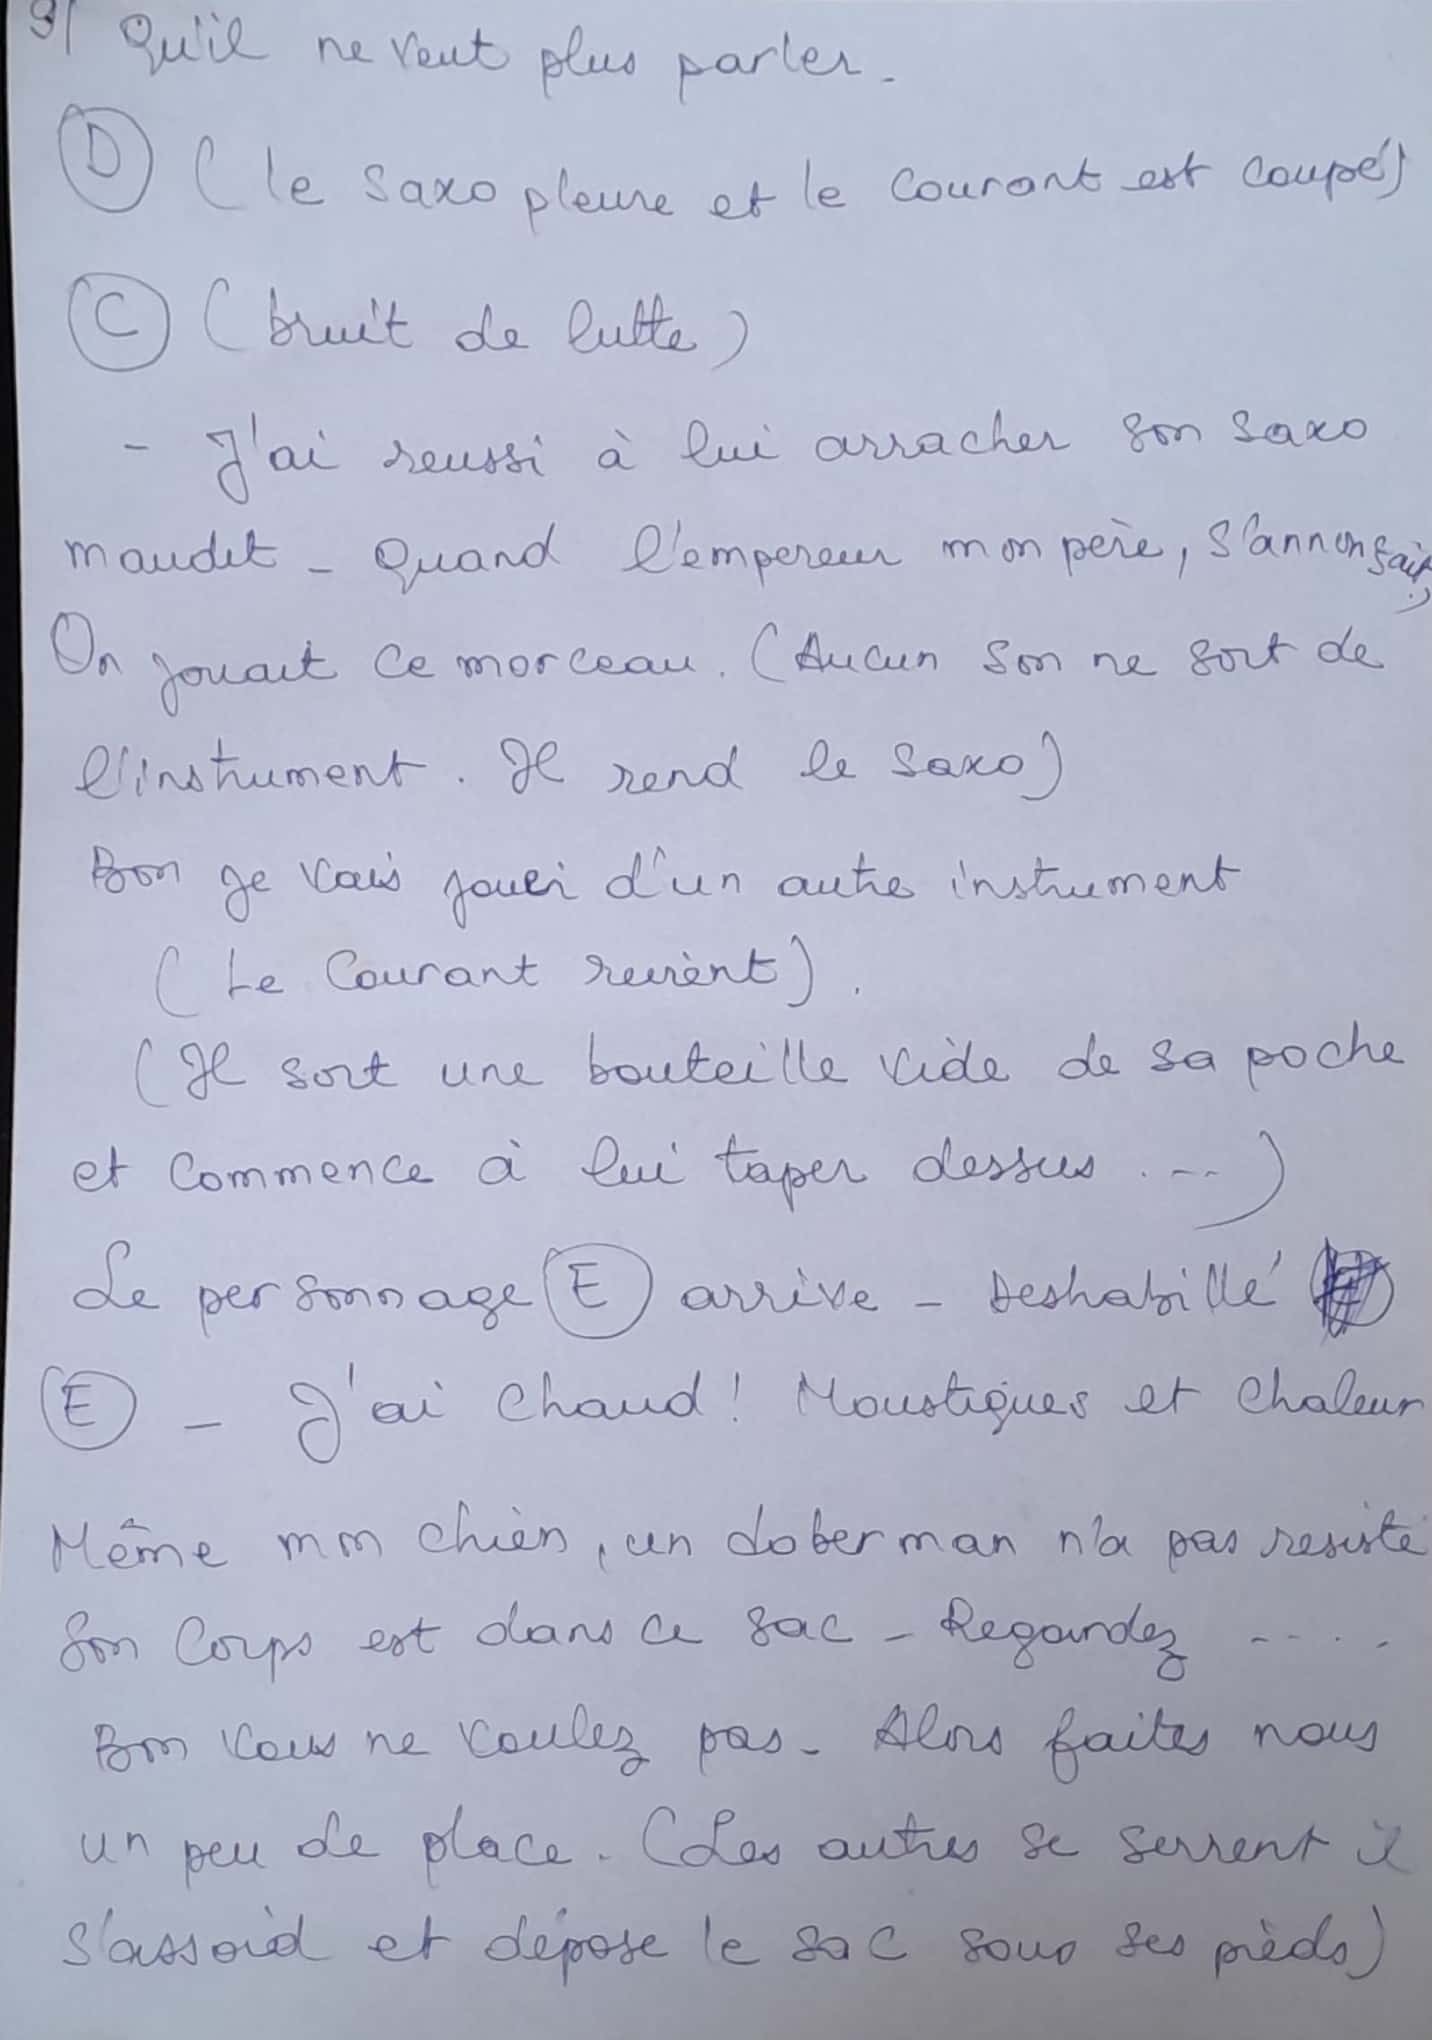 9/ Qu'il ne veut plus parler.
(D) (le saxo pleure et le courant est coupé)
(C) (bruit de lutte)
- J'ai reussi à lui arracher son saxo
maudit - Quand l'empereur mon père, s'annonçait,
On jouait ce morceau. (Aucun son ne sort de
l'instrument. Il rend le saxo)
Bon je vais jouer d'un autre instrument
(Le Courant revient).
(Il sort une bouteille vide de sa poche
et commence à lui taper dessus ...)
Le personnage (E) arrive - Deshabillé
(E) - J'ai chaud! Moustiques et chaleur
Même mon chien, un doberman n'a pas resisté
Son Corps est dans ce sac - Regardez .....
Bon vous ne voulez pas - Alors faites nous
un peu de place. (Les autres se serrent il
s'assoid et dépose le sac sous ses pieds)